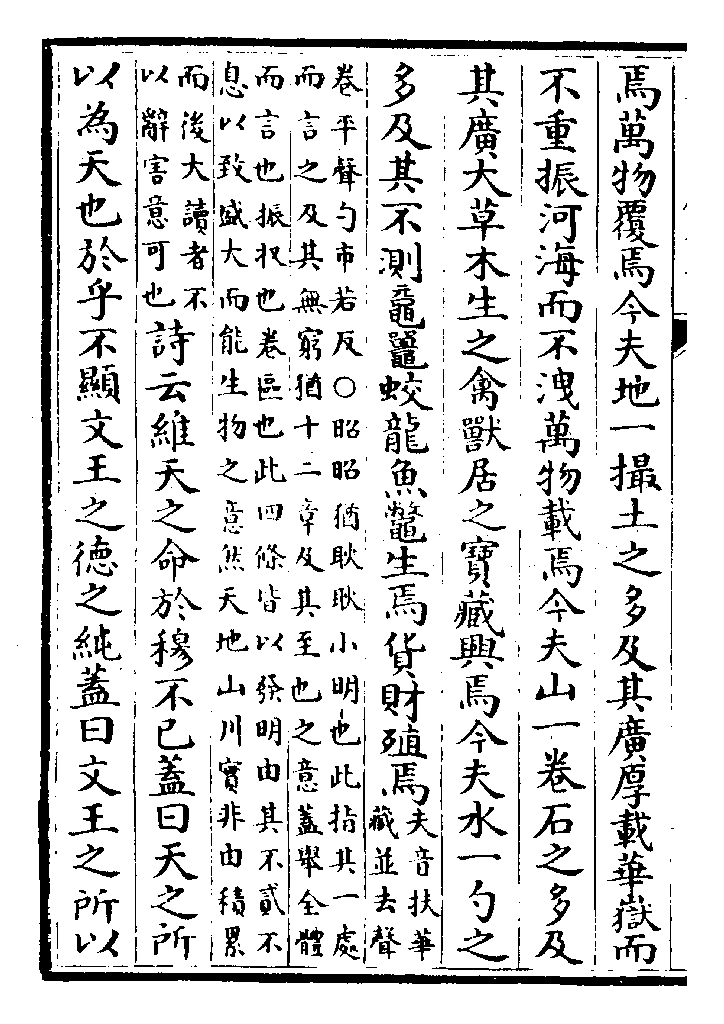 焉萬物覆焉今夫地一撮土之多及其廣厚載華嶽而
不重振河海而不洩萬物載焉今夫山一卷石之多及
其廣大草木生之禽獸居之寶藏興焉今夫水一勺之
多及其不測黿鼉蛟龍魚鼈生焉貨財殖焉
夫音扶華
藏並去聲
卷平聲勺市若反○昭昭猶耿耿小明也此指其一處
而言之及其無窮猶十二章及其至也之意蓋舉全體
而言也振収也卷區也此四條皆以發明由其不貳不
息以致盛大而能生物之意然天地山川實非由積累
而後大讀者不
以辭害意可也
詩云維天之命於穆不已蓋曰天之所
以為天也於乎不顯文王之德之純蓋曰文王之所以